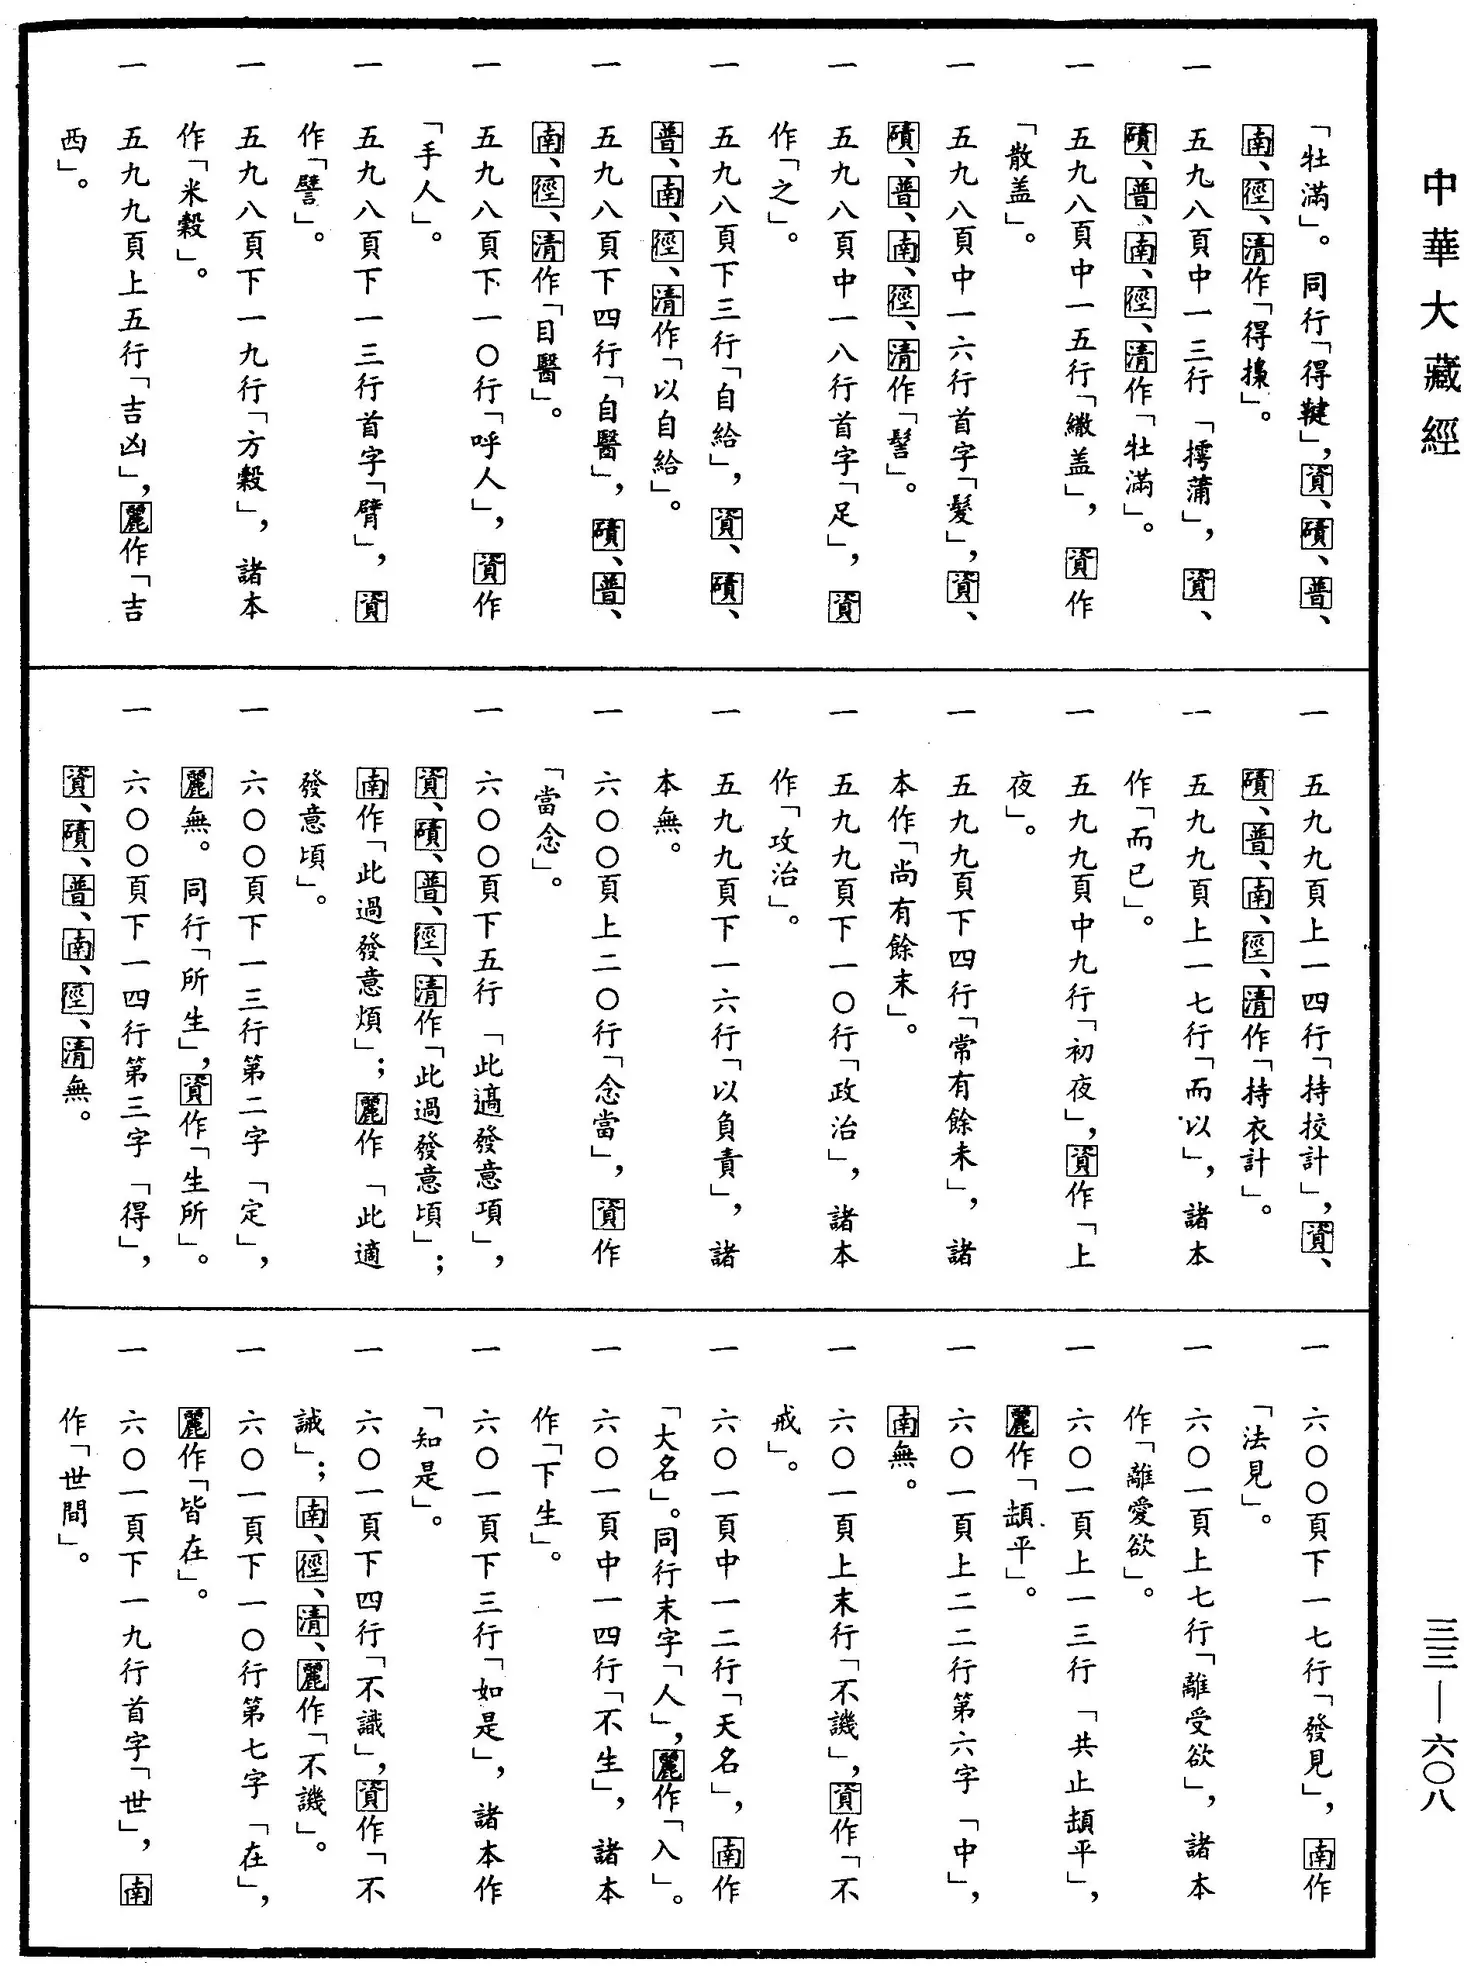 中華大藏經
「牡滿」。同行「得鞬」，資、磧、普、
南、徑、清作「得搙」。
一　五九八頁中一三行「摴蒲」，資、
磧、普、南、徑、清作「牡滿」。
一　五九八頁中一五行「繖盖」，資作
「散盖」。
一　五九八頁中一六行首字「髮」，資、
磧、普、南、徑、清作「髻」。
一　五九八頁中一八行首字「足」，資
作「之」。
一　五九八頁下三行「自給」，資、磧、
普、南、徑、清作「以自給」。
一　五九八頁下四行「自醫」，磧、普、
南、徑、清作「目醫」。
一　五九八頁下一〇行「呼人」，資作
「手人」。
一　五九八頁下一三行首字「臂」，資
作「譬」。
一　五九八頁下一九行「方穀」，諸本
作「米穀」。
一　五九九頁上五行「吉凶」，麗作「吉
西」。
一　五九九頁上一四行「持挍計」，資、
磧、普、南、徑、清作「持衣計」。
一　五九九頁上一七行「而以」，諸本
作「而已」。
一　五九九頁中九行「初夜」，資作「上
夜」。
一　五九九頁下四行「常有餘未」，諸
本作「尚有餘末」。
一　五九九頁下一〇行「政治」，諸本
作「攻治」。
一　五九九頁下一六行「以負責」，諸
本無。
一　六〇〇頁上二〇行「念當」，資作
「當念」。
一　六〇〇頁下五行「此適發意項」，
資、磧、普、徑、清作「此過發意頃」；
南作「此過發意煩」；麗作「此適
發意頃」。
一　六〇〇頁下一三行第二字「定」，
麗無。同行「所生」，資作「生所」。
一　六〇〇頁下一四行第三字「得」，
資、磧、普、南、徑、清無。
一　六〇〇頁下一七行「發見」，南作
「法見」。
一　六〇一頁上七行「離受欲」，諸本
作「離愛欲」。
一　六〇一頁上一三行「共止頿平」，
麗作「頿平」。
一　六〇一頁上二二行第六字「中」，
南無。
一　六〇一頁上末行「不譏」，資作「不
戒」。
一　六〇一頁中一二行「天名」，南作
「大名」。同行末字「人」，麗作「入」。
一　六〇一頁中一四行「不生」，諸本
作「下生」。
一　六〇一頁下三行「如是」，諸本作
「知是」。
一　六〇一頁下四行「不識」，資作「不
誡」；南、徑、清、麗作「不譏」。
一　六〇一頁下一〇行第七字「在」，
麗作「皆在」。
一　六〇一頁下一九行首字「世」，南
作「世間」。
三三—六〇八